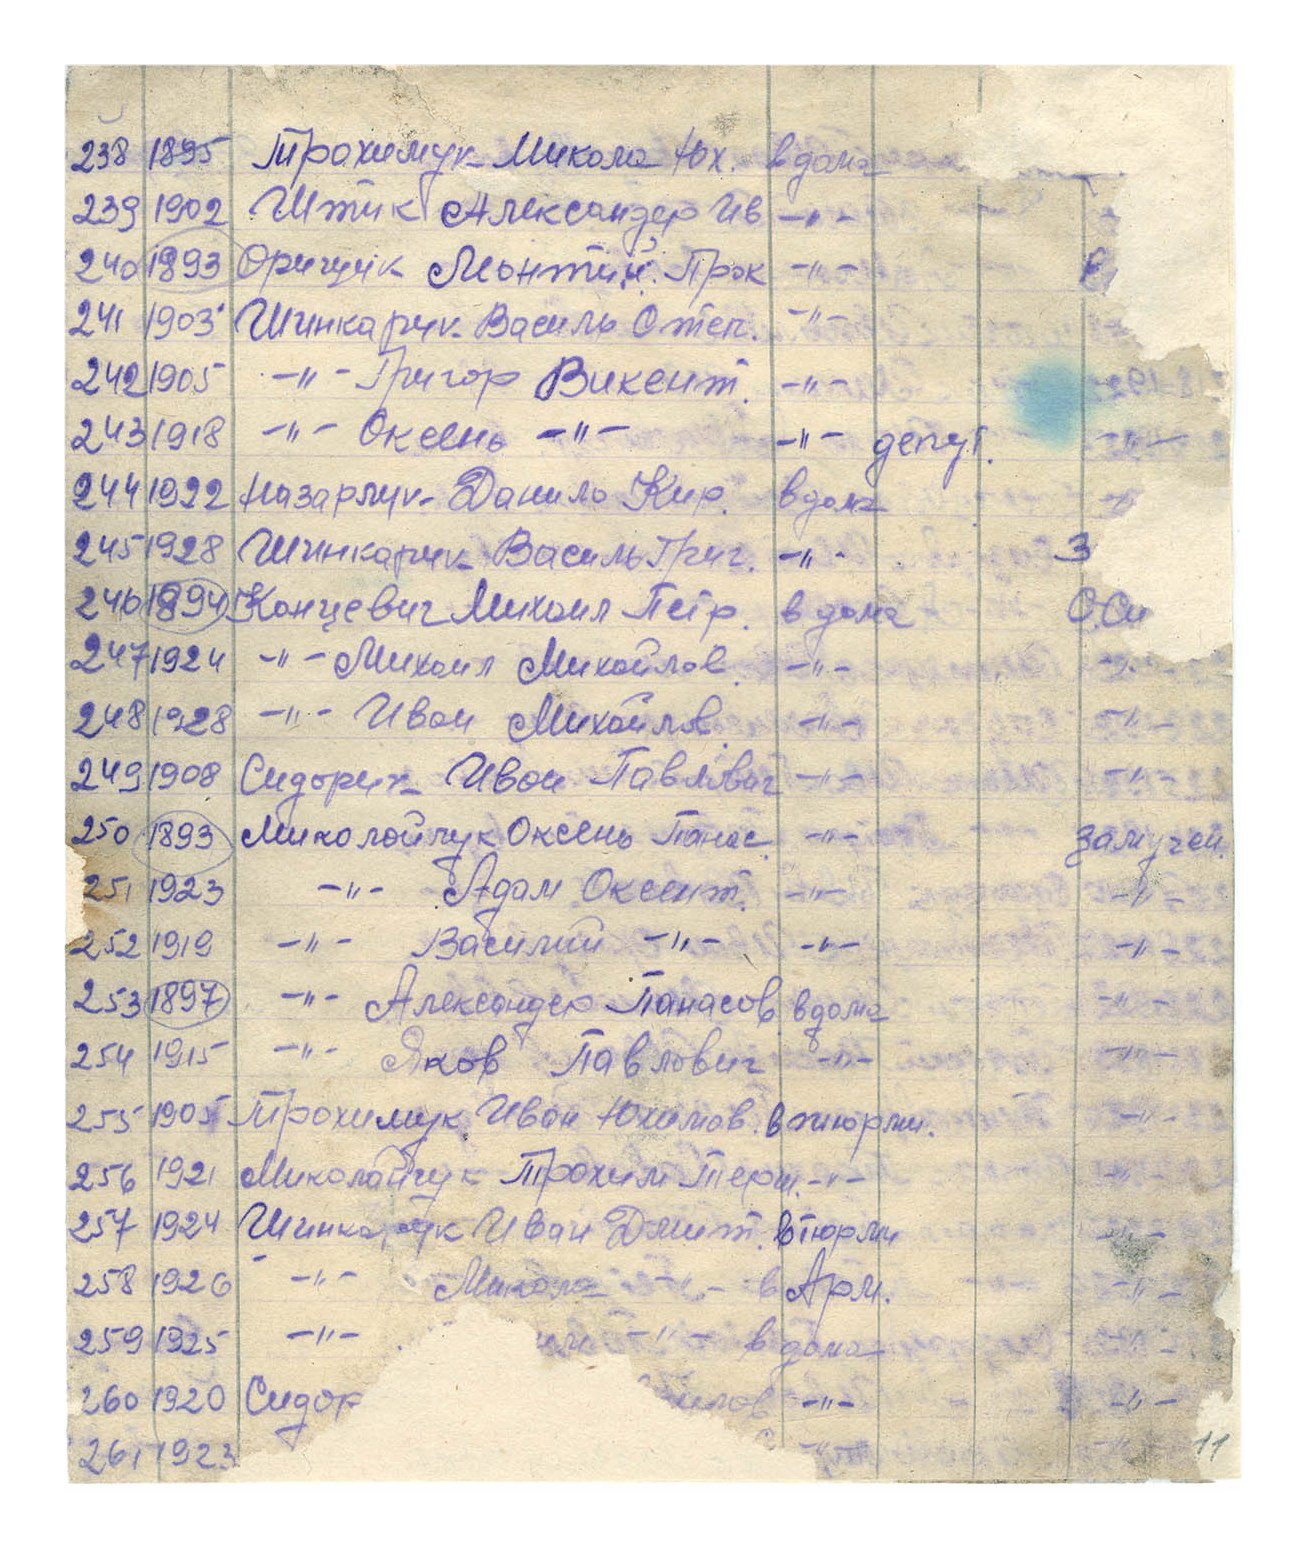 238 1895 Трохимук Микола Юх. вдома
239 1902 Штик Александер Ив -"-
240 1893 Оригуик Леонтий. Прок -"-
241 1903 Шинкарук Василь Отеп. -"-
242 1905 -"- Григор Викент. -"-
243 1918 -"- Оксень -"- -"- депут.
244 1922 Назарчук Данило Кир. вдома
245 1928 Шинкарук Василь Григ. -"- З
246 1894 Концевич Михаил Петр. в дома О.Си
247 1924 -"- Михаил Михайлов. -"- -"-
248 1928 -"- Иван Михайлов. -"- -"-
249 1908 Сидорук Иван Павлович -"- -"-
250 1893 Миколайчук Оксень Панас. -"- замучен.
251 1923 -"- Адам Оксент. -"- -"-
252 1919 -"- Василий -"- -"- -"-
253 1897 -"- Александер Панасов. вдома -"-
254 1915 -"- Яков Павлович -"- -"-
255 1905 Трохимук Иван Юхимов. в тюрми. -"-
256 1921 Миколайчук Трохим Терш. -"- -"-
257 1924 Шинкарук Иван Дмит. в тюрми -"-
258 1926 -"- Микола -"- в Арм. -"-
259 1925 -"- -"- в дома -"-
260 1920 Сидор илов -"- -"-
261 1923 -"-
11